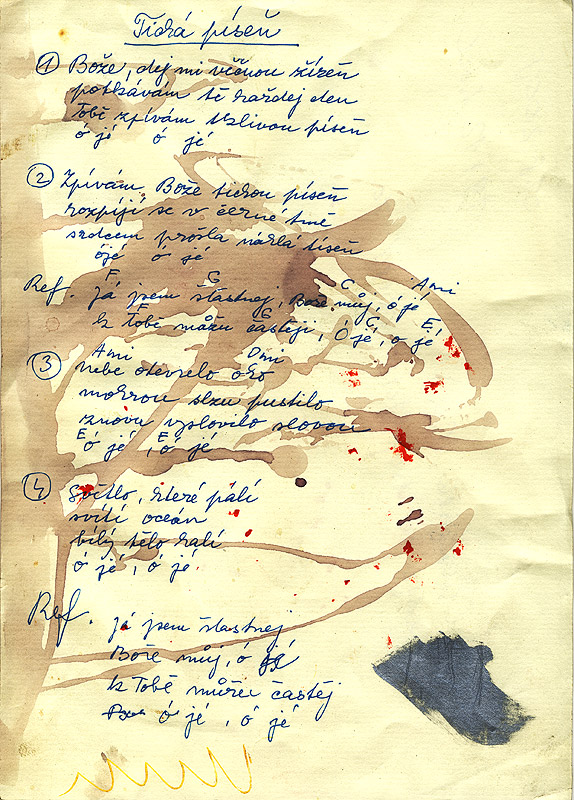 Tichá píseň
① Bože, dej mi věčnou žízeň
potkávám tě každej den
Tobě zpívám tklivou píseň
ó jé ó jé
② Zpívám, Bože tichou píseň
rozpíjí se v černé tmě
srdcem prošla náhlá tíseň
ó jé ó jé
F G C Ami
Ref. Já jsem šťastnej, Bože můj, ó jé
G C E
k Tobě můžu častěji, ó jé, ó jé
Ami Dmi
③ nebe otevřelo oko
mokrou slzu pustilo
znovu vyslovilo slovou
E E
ó jé, ó jé
④ Světlo, které pálí
svítí oceán
bílý tělo halí
ó jé, ó jé.
Ref. Já jsem šťastnej
Bože můj, ó jé
k Tobě můžu častěj
ó jé, ó jé